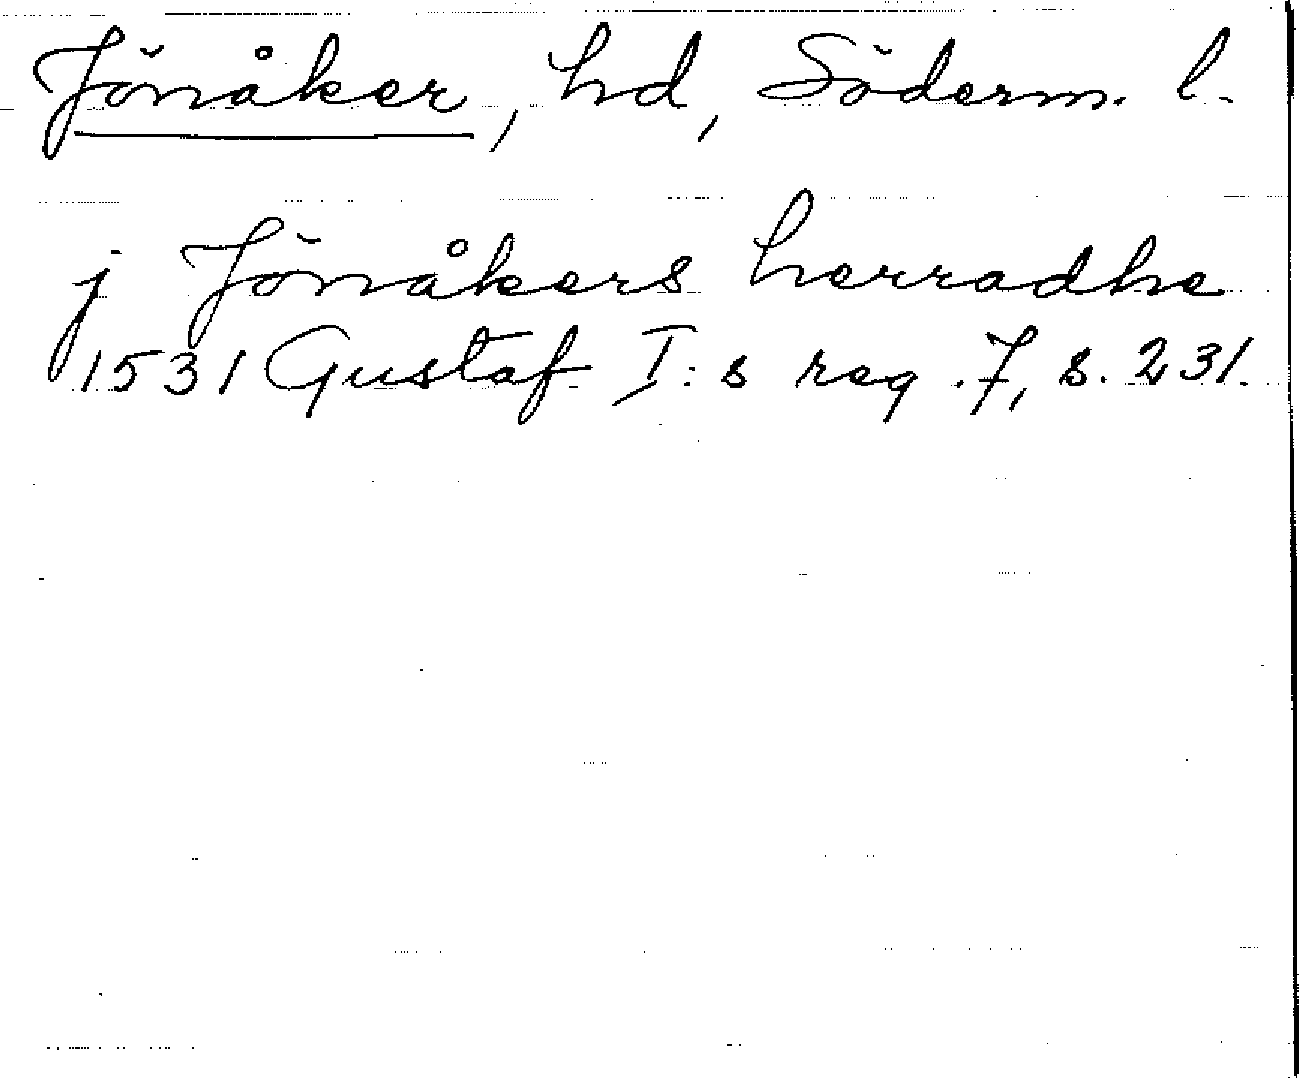 Jönåker, hd, Söderm. l.
j Jönåkers herradhe
1531 Gustaf I:s reg. 7, s. 231.